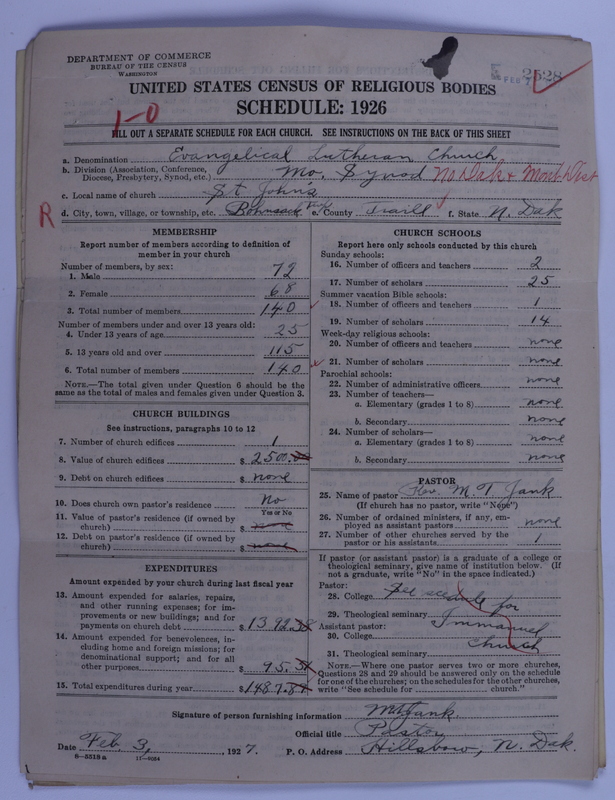 DEPARTMENT OF COMMERCE
BUREAU OF THE CENSUS
WASHINGTON
2528
FEB 7
UNITED STATES CENSUS OF RELIGIOUS BODIES
SCHEDULE: 1926
1-0
FILL OUT A SEPARATE SCHEDULE FOR EACH CHURCH. SEE INSTRUCTIONS ON THE BACK OF THIS SHEET
a. Denomination Evangelical Lutheran Church
b. Division (Association, Conference, Diocese, Presbytery, Synod, etc.) Mo. Synod No Dak & Mont Dist
c. Local name of church St John's
R d. City, town, village, or township, etc. e. County Traill f. State N. Dak
MEMBERSHIP
Report number of members according to definition of
member in your church
Number of members, by sex:
1. Male 72
2. Female 68
3. Total number of members 140
Number of members under and over 13 years old:
4. Under 13 years of age 25
5. 13 years old and over 115
6. Total number of members 140
NOTE.—The total given under Question 6 should be
same as the total of males and females given under Question 3.
CHURCH BUILDINGS
See instructions, paragraphs 10 to 12
7. Number of church edifices 1
8. Value of church edifices $ 2500
9. Debt on church edifices $ none
10. Does church own pastor's residence No
Yes or No
11. Value of pastor's residence (if owned by
church) $ none
12. Debt on pastor's residence (if owned by
church) $ none
EXPENDITURES
Amount expended by your church during last fiscal year
13. Amount expended for salaries, repairs,
and other running expenses; for im-
provements or new buildings; and for
payments on church debt $ 1392.
14. Amount expended for benevolences, in-
cluding home and foreign missions; for
denominational support; and for all
other purposes $ 95.
15. Total expenditures during year $ 1487.
CHURCH SCHOOLS
Report here only schools conducted by this church
Sunday schools:
16. Number of officers and teachers 2
17. Number of scholars 25
Summer vacation Bible schools:
18. Number of officers and teachers 1
19. Number of scholars 14
Week-day religious schools:
20. Number of officers and teachers none
21. Number of scholars none
Parochial schools:
22. Number of administrative officers none
23. Number of teachers—
a. Elementary (grades 1 to 8) none
b. Secondary none
24. Number of scholars—
a. Elementary (grades 1 to 8) none
b. Secondary none
PASTOR
25. Name of pastor Rev. M. T. Jank
(If church has no pastor, write "None")
26. Number of ordained ministers, if any, em-
ployed as assistant pastors none
27. Number of other churches served by the
pastor or his assistants 1
If pastor (or assistant pastor) is a graduate of a college or
theological seminary, give name of institution below. (If
not a graduate, write "No" in the space indicated.)
Pastor:
28. College See schedule for
29. Theological seminary Immanuel
Assistant pastor:
30. College Church
31. Theological seminary
NOTE.—Where one pastor serves two or more churches,
Questions 28 and 29 should be answered only on the schedule
for one of the churches; on the schedules for the other churches,
write "See schedule for church."
Signature of person furnishing information M T Jank
Official title Pastor
Date Feb. 3, 1927. P. O. Address Hillsboro, N. Dak.
8—5519a 11—9054